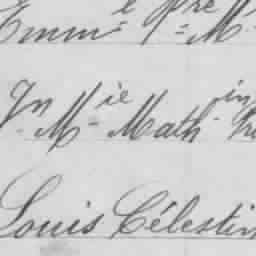 Emm^e P^re M
Jn M^ie Math^in
Louis Célestin